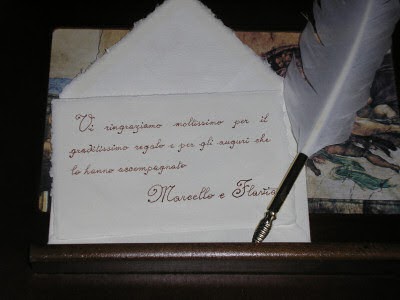 Vi ringraziamo moltissimo per il
graditissimo regalo e per gli auguri che
lo hanno accompagnato
Marcello e Flavia